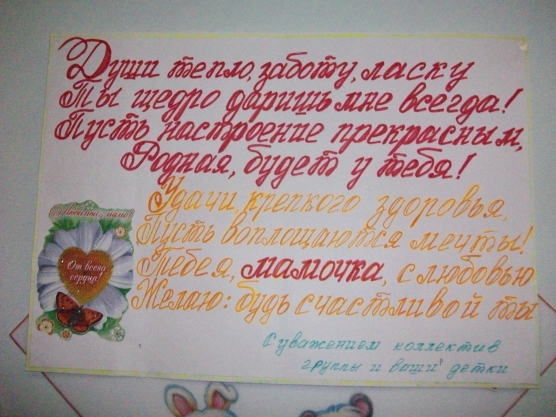 Души тепло, заботу, ласку
Ты щедро даришь мне всегда!
Пусть настроение прекрасным,
Родная, будет у тебя!
Удачи, крепкого здоровья
Пусть воплощаются мечты!
Тебе я, мамочка, с любовью
Желаю: будь счастливой ты
С уважением коллектив
группы и ваши детки
От всего
сердца!